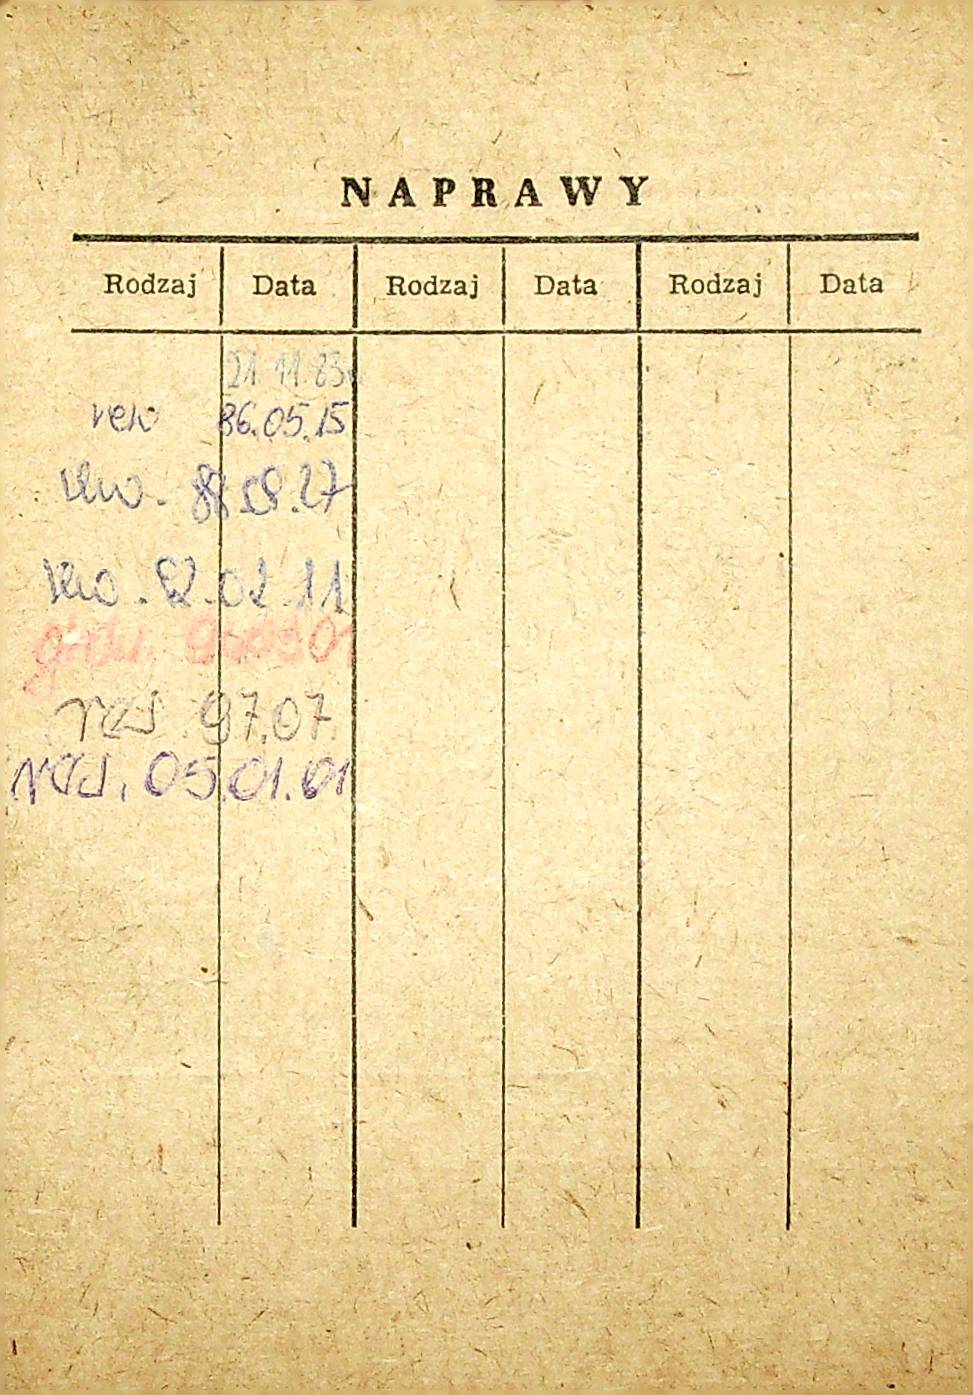 NAPRAWY
Rodzaj Data Rodzaj Data Rodzaj Data
21 11.83
rew 86.05.15
rew. 88.09.27
rew. 92.02.11
97.07.
05.01.01